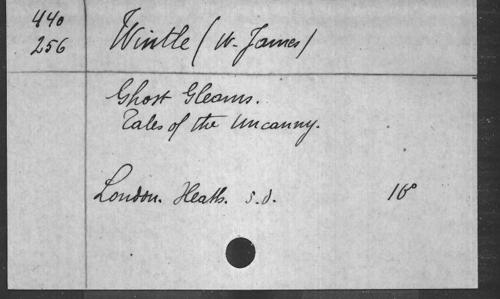 440
256
Wintle (W. James)
Ghost Gleams.
Tales of the Uncanny.
London. Heath. s.d. 16°